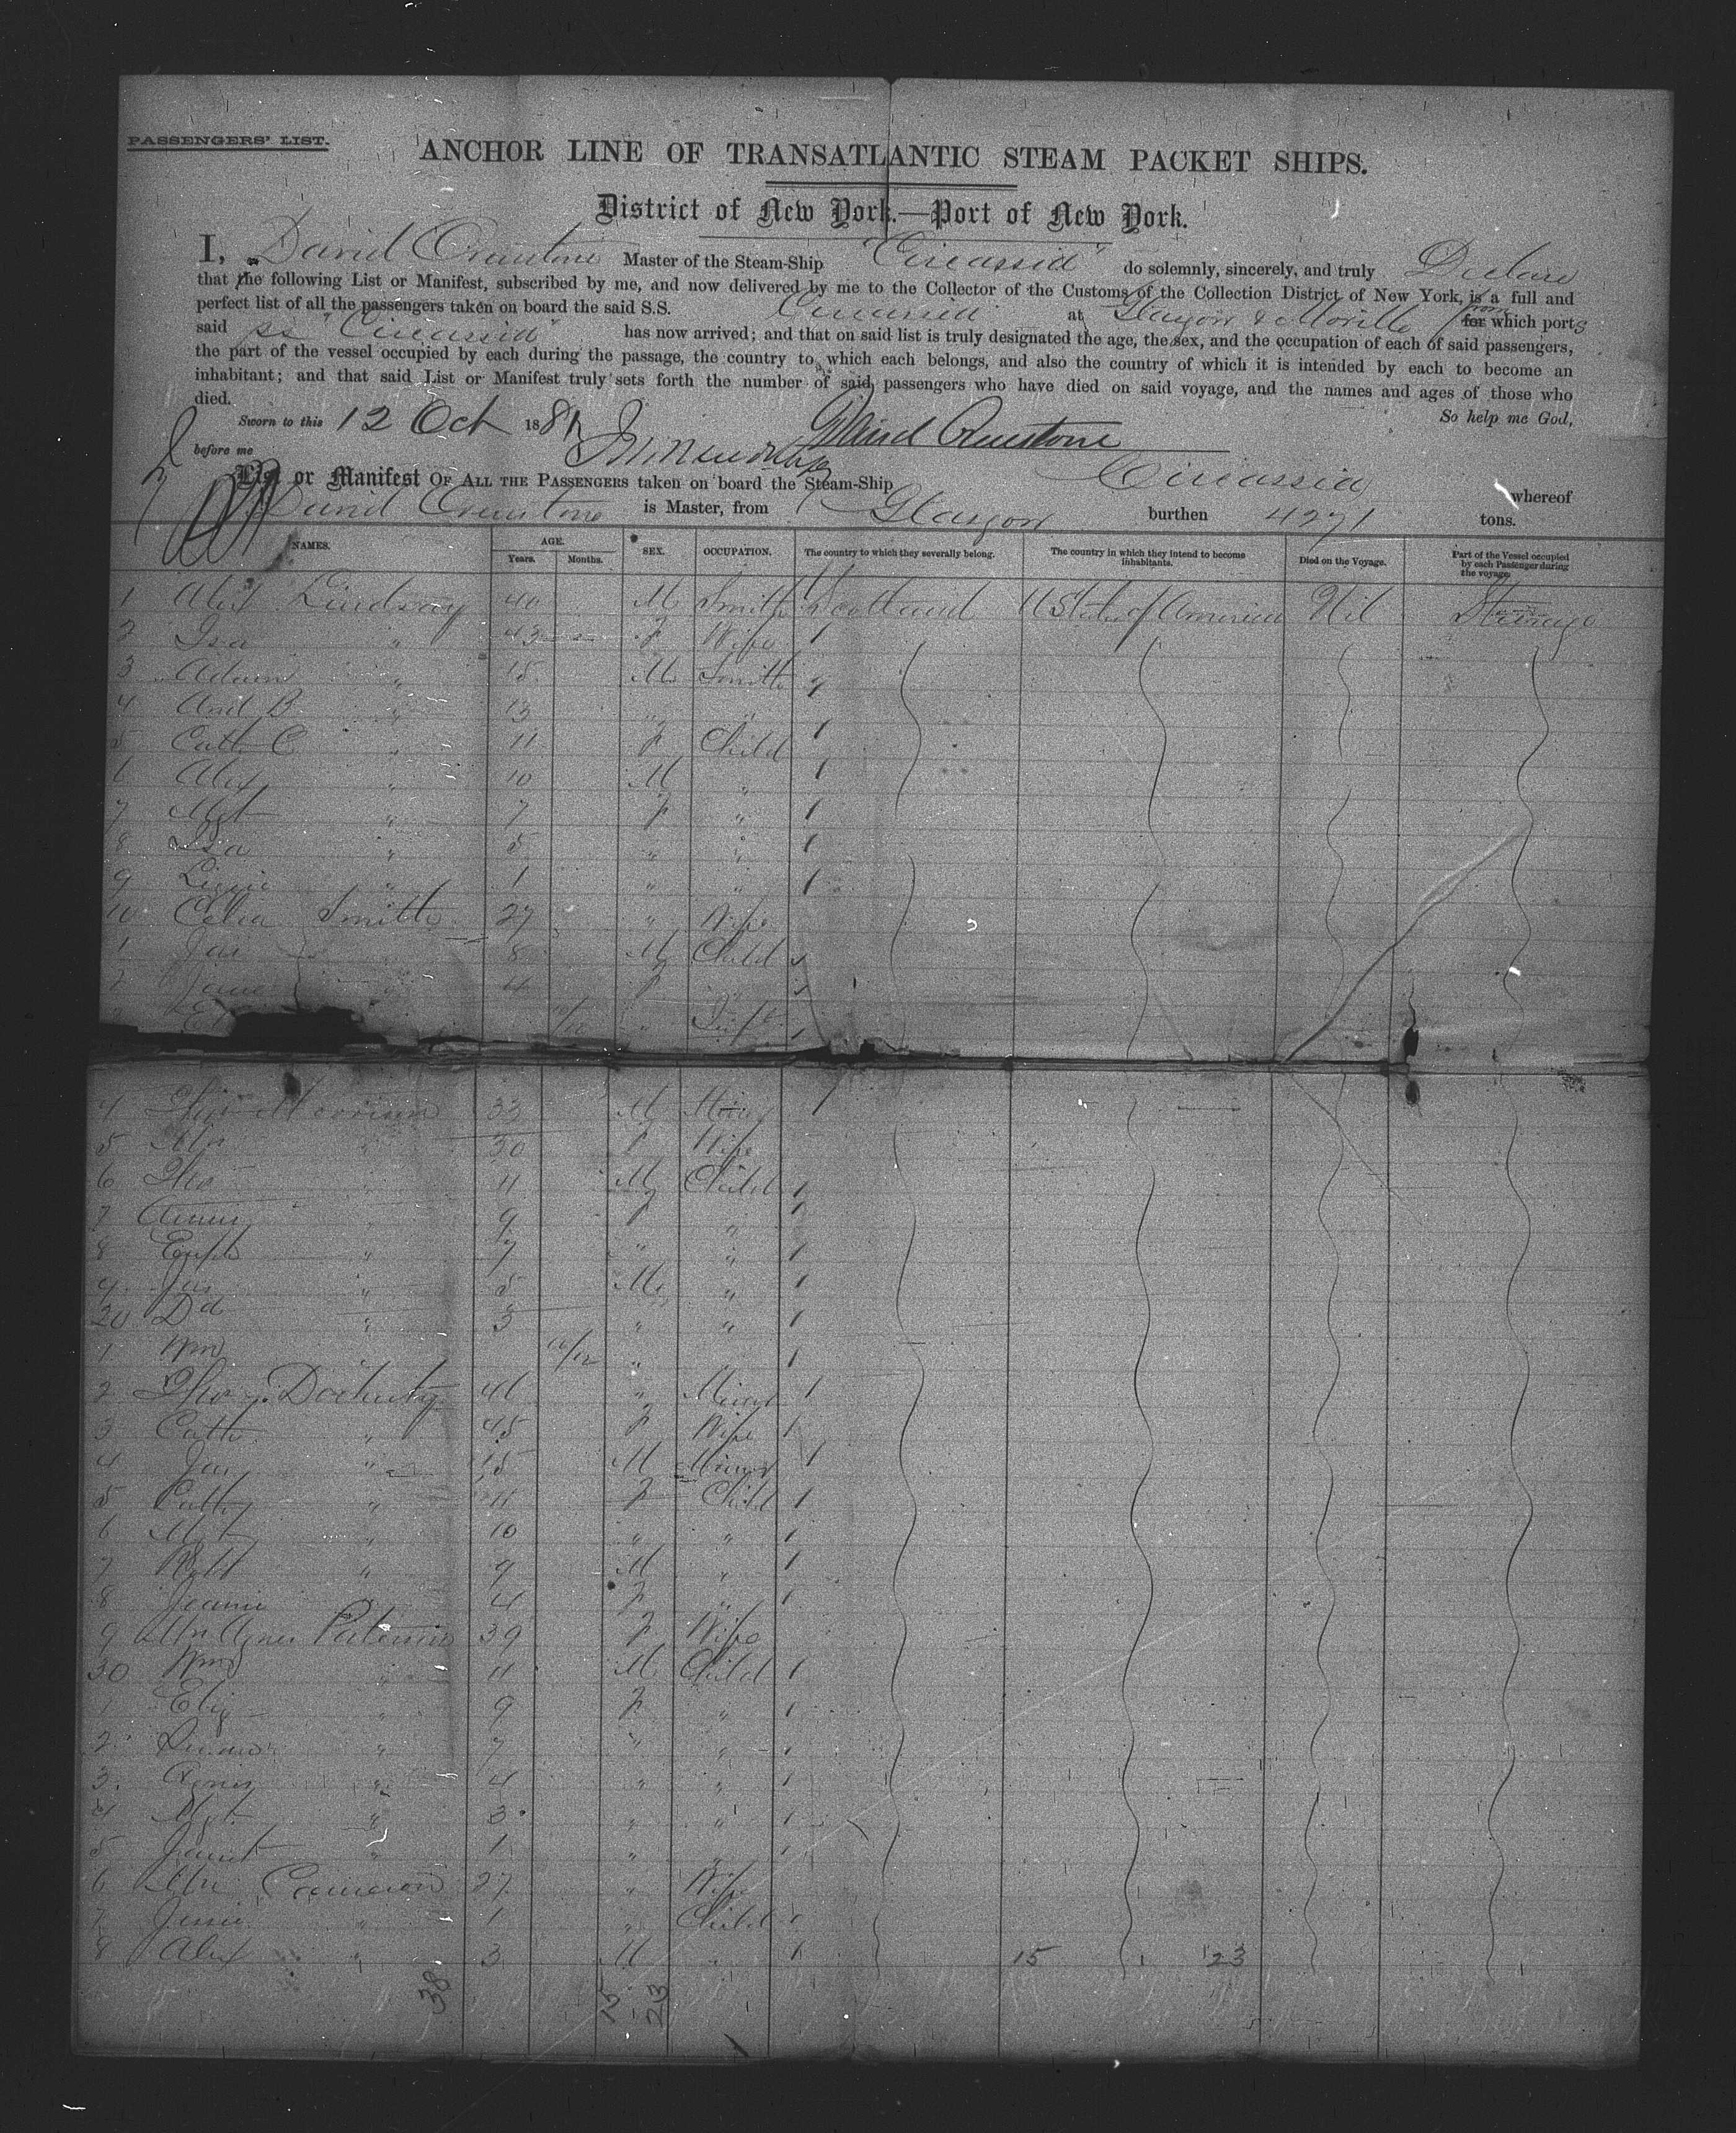 PASSENGERS' LIST.
ANCHOR LINE OF TRANSATLANTIC STEAM PACKET SHIPS.
District of New York.—Port of New York.
I, David Master of the Steam-Ship "Circassia" do solemnly, sincerely, and truly Declare
that the following List or Manifest, subscribed by me, and now delivered by me to the Collector of the Customs of the Collection District of New York, is a full and
perfect list of all the passengers taken on board the said S.S. Circassia at Glasgow & Moville from for which ports
said ss "Circassia" has now arrived; and that on said list is truly designated the age, the sex, and the occupation of each of said passengers,
the part of the vessel occupied by each during the passage, the country to which each belongs, and also the country of which it is intended by each to become an
inhabitant; and that said List or Manifest truly sets forth the number of said passengers who have died on said voyage, and the names and ages of those who
died. So help me God,
Sworn to this 12 Oct 1881
before me
List or Manifest OF ALL THE PASSENGERS taken on board the Steam-Ship Circassia whereof
David is Master, from Glasgow burthen 4271 tons.
NAMES. AGE. Years. Months. SEX. OCCUPATION. The country to which they severally belong. The country in which they intend to become inhabitants. Died on the Voyage. Part of the Vessel occupied by each Passenger during the voyage
1 Alex Lindsay 40 M Smith Scotland U States of America Nil Steerage
2 Isa " 43 F Wife
3 Adam " 15 M Smith
4 And B " 13 " "
5 Cath C " 11 F Child
6 Alex " 10 M "
7 Mgt " 7 F "
8 Isa " 5 " "
9 Lizzie " 1 " "
10 Celia Smith 27 " Wife
1 Jas " 8 M Child
2 " 4 F "
" Inft
4 Thos Morrison 33 M
5 Mrs " 30 F Wife
6 Thos " 11 M Child
7 Annie " 9 F "
8 Euph " 7 " "
9 Jas " 5 M "
20 Dd " 3 " "
1 Wm "
2 Thos Docherty 46 " Miner
3 Cath " 45 F Wife
4 Jas " 15 M Miner
5 " 11 F Child
6 Mgt " 10 " "
7 Robt " 9 M "
8 Jeanie " 4 F "
9 Mrs Agnes Paterson 39 F Wife
30 Wm " 11 M Child
1 Eliz " 9 F "
2 " 7 " "
3 Agnes " 4 " "
4 Mgt " 3 " "
5 Janet " 1 " "
6 Mrs Cameron 27 " Wife
7 Jessie " 1 " Child
8 Alex " 3 M " 15 23
38 15 23